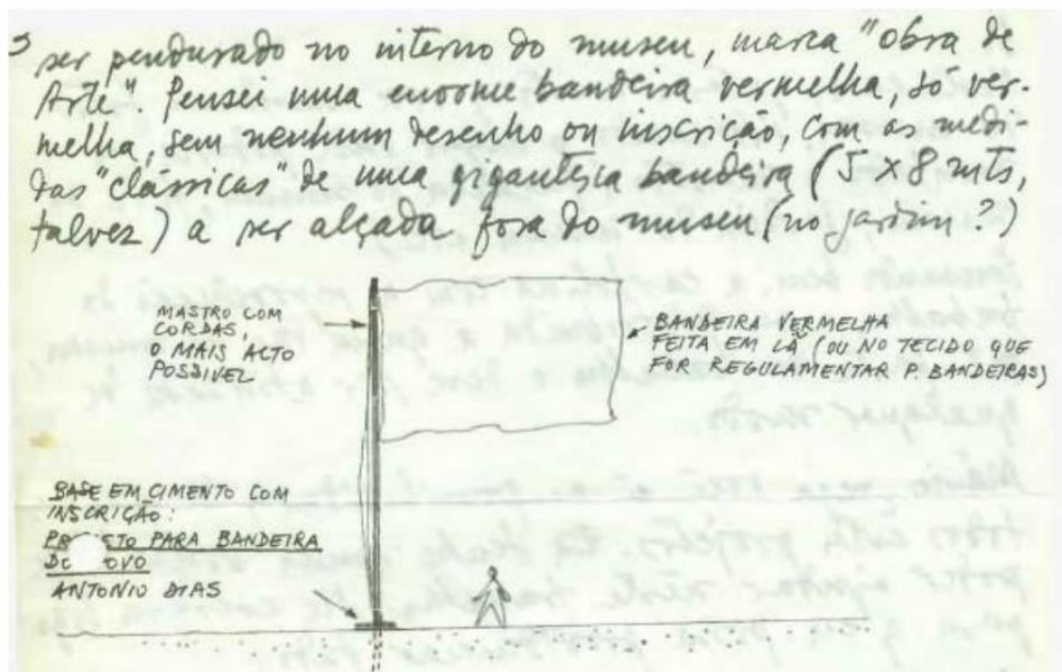 ser pendurado no interno do museu, marca "obra de
Arte". Pensei numa enorme bandeira vermelha, só ver-
melha, sem nenhum desenho ou inscrição, com as medi-
das "clássicas" de uma gigantesca bandeira (5 x 8 mts,
talvez) a ser alçada fora do museu (no jardim?)
MASTRO COM
CORDAS,
O MAIS ALTO
POSSIVEL
BANDEIRA VERMELHA
FEITA EM LÃ (OU NO TECIDO QUE
FOR REGULAMENTAR P. BANDEIRAS)
BASE EM CIMENTO COM
INSCRIÇÃO:
PARA BANDEIRA
ANTONIO DIAS